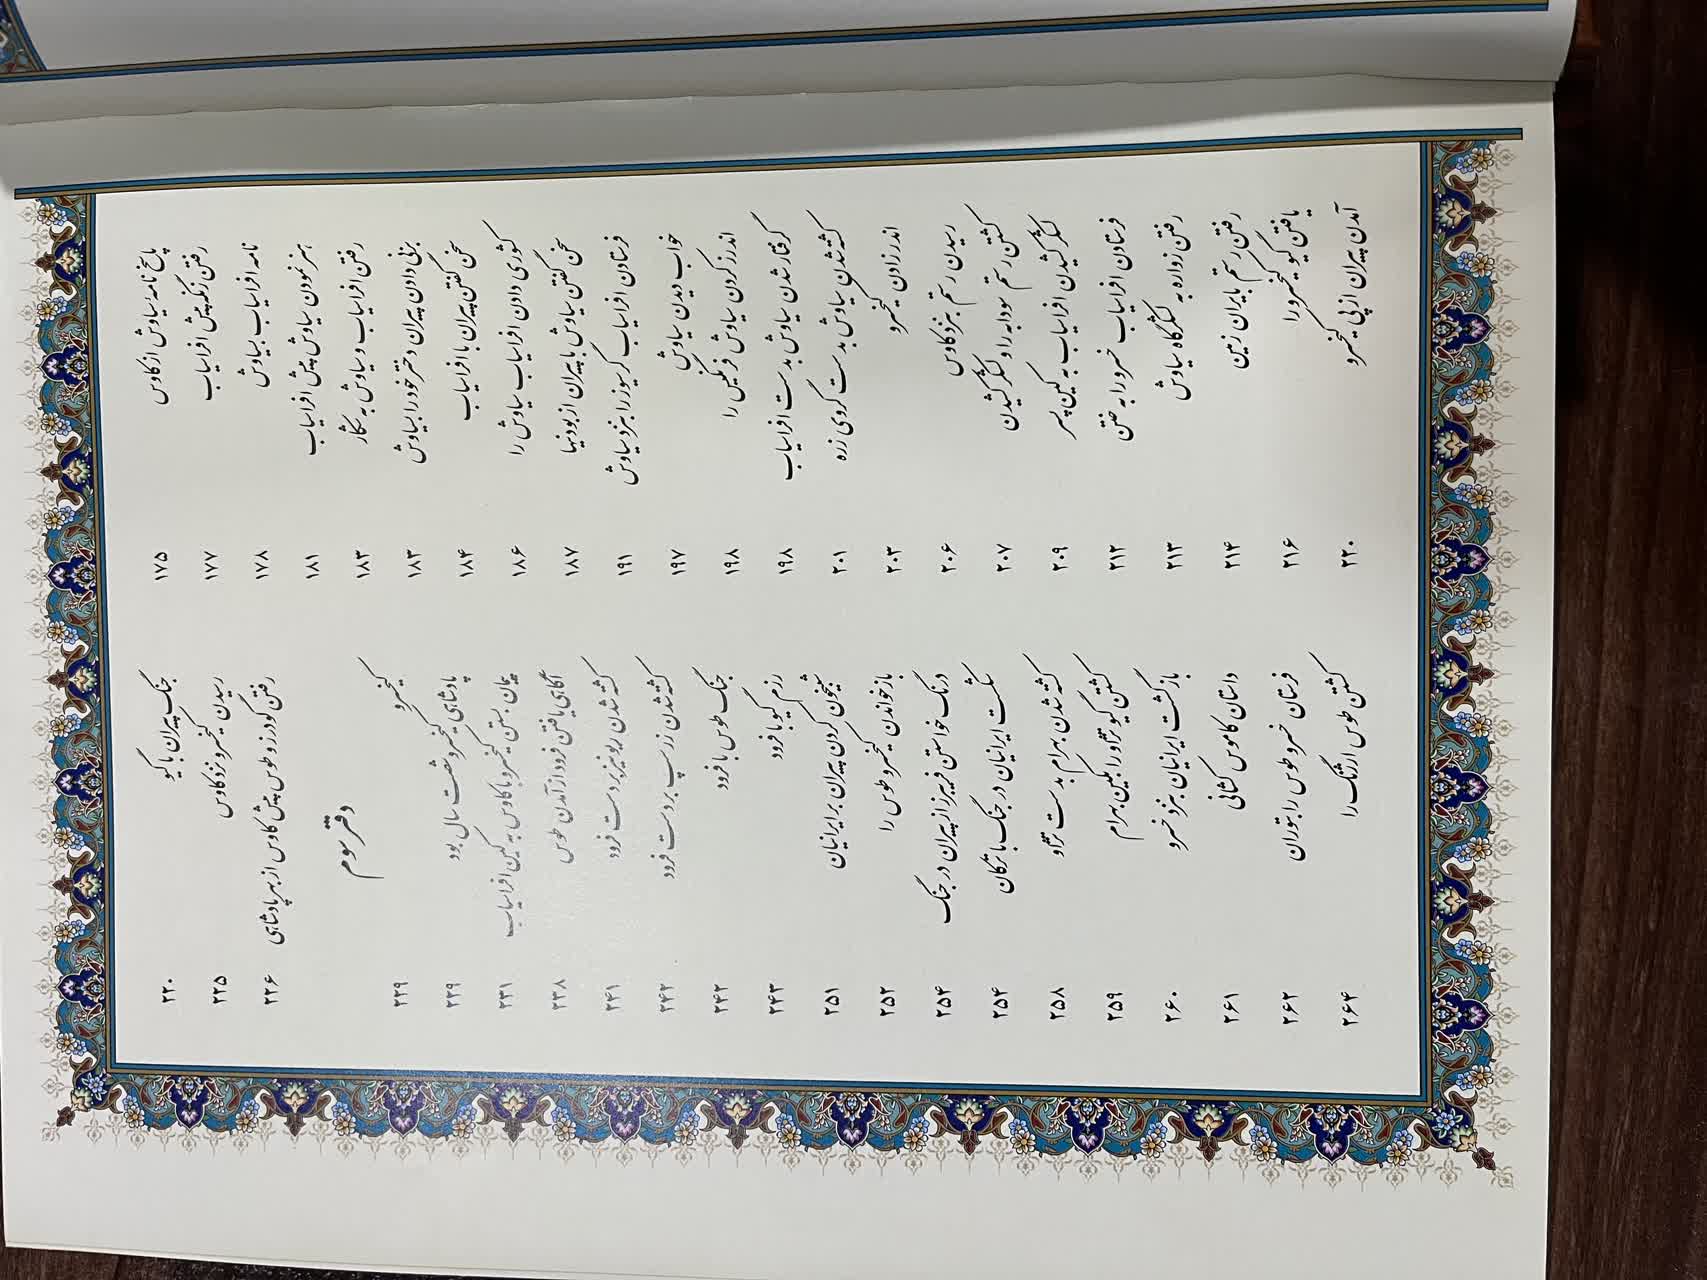 پاسخ نامه سیاوش از کاوس ۱۷۵
رفتن زنگه پیش افراسیاب ۱۷۷
نامه افراسیاب بسیاوش ۱۷۸
هنر نمودن سیاوش پیش افراسیاب ۱۸۱
رفتن افراسیاب و سیاوش به شکار ۱۸۳
بزنی دادن پیران دختر خود را بسیاوش ۱۸۳
سخن گفتن پیران با افراسیاب ۱۸۴
کشوری دادن افراسیاب سیاوش را ۱۸۶
سخن گفتن سیاوش با پیران از بودنیها ۱۸۷
فرستادن افراسیاب گرسیوز را بنزد سیاوش ۱۹۱
خواب دیدن سیاوش ۱۹۷
اندرز کردن سیاوش فرنگیس را ۱۹۸
گرفتار شدن سیاوش بدست افراسیاب ۱۹۸
کشته شدن سیاوش بدست گروی زره ۲۰۱
اندر زادن کیخسرو ۲۰۳
رسیدن رستم بنزد کاوس ۲۰۶
کشتن رستم سودابه را و لشکر کشیدن ۲۰۷
لشکر کشیدن افراسیاب به کین پسر ۲۰۹
فرستادن افراسیاب خسرو را به ختن ۲۱۲
رفتن زواره به لشکرگاه سیاوش ۲۱۳
رفتن رستم بایران زمین ۲۱۴
یافتن گیو کیخسرو را ۲۱۶
آمدن پیران از پی کیخسرو ۲۲۰
جنگ پیران با گیو ۲۲۰
رسیدن کیخسرو نزد کاوس ۲۲۵
رفتن گودرز و طوس پیش کاوس از بهر پادشاهی ۲۲۶
دفتر سوم
کیخسرو ۲۲۹
پادشاهی کیخسرو شصت سال بود ۲۲۹
پیمان بستن کیخسرو با کاوس به کین افراسیاب ۲۳۱
آگاهی یافتن فرود از آمدن طوس ۲۳۸
کشته شدن ریونیز بر دست فرود ۲۴۱
کشته شدن زرسپ بر دست فرود ۲۴۲
جنگ طوس با فرود ۲۴۲
رزم گیو با فرود ۲۴۳
شبیخون کردن پیران بر ایرانیان ۲۵۱
باز خواندن کیخسرو طوس را ۲۵۲
درنگ خواستن فریبرز از پیران در جنگ ۲۵۴
شکست ایرانیان در جنگ با ترکان ۲۵۴
کشته شدن بهرام بدست تژاو ۲۵۸
کشتن گیو تژاو را بکین بهرام ۲۵۹
بازگشت ایرانیان بنزد خسرو ۲۶۰
داستان کاموس کشانی ۲۶۱
فرستان خسرو طوس را بتوران ۲۶۲
کشتن طوس ارژنگ را ۲۶۴